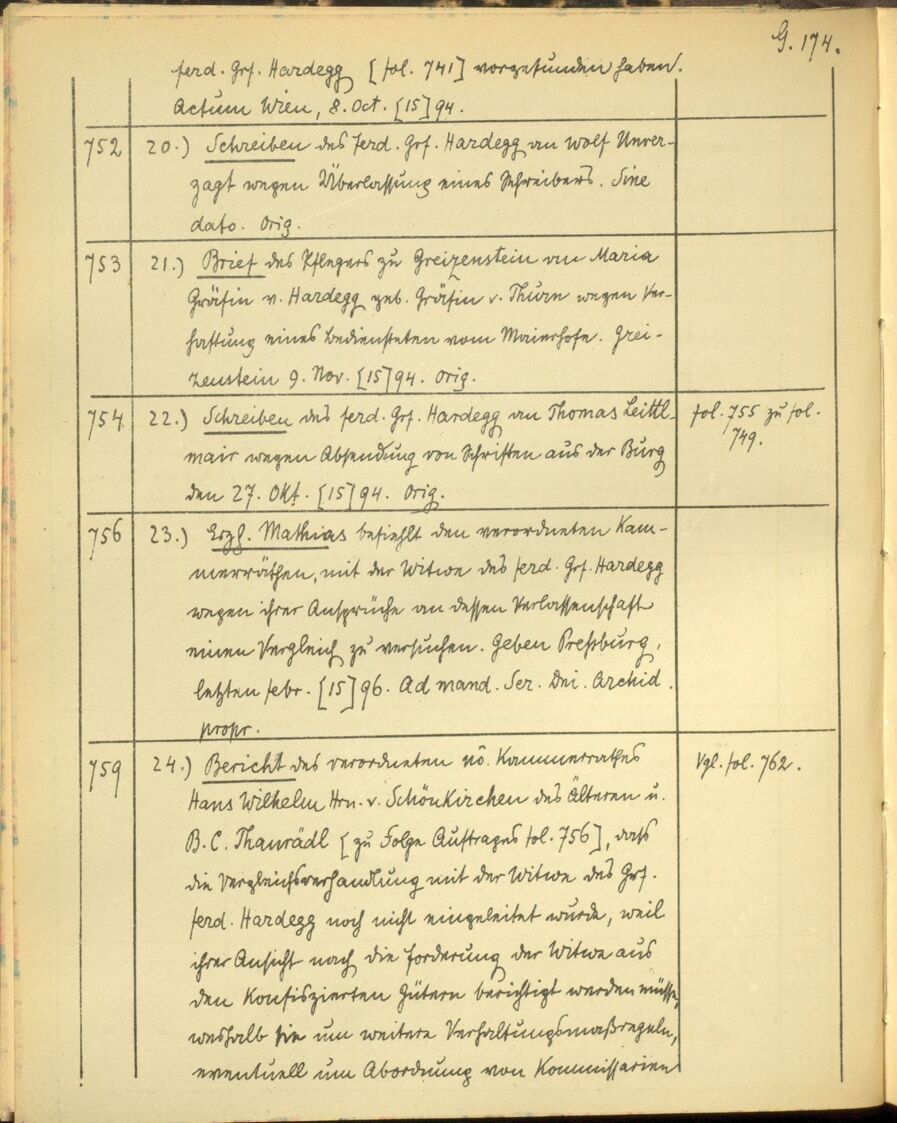 G. 174.
ferd. Grf. Hardegg [fol. 741] vorgefunden haben.
Actum Wien, 8. Oct. [15]94.
752 20.) Schreiben des ferd. Grf. Hardegg an Wolf Unver-
zagt wegen Überlassung eines Schreibers. Sine
dato. Orig.
753 21.) Brief des Pflegers zu Greizenstein an Maria
Gräfin v. Hardegg geb. Gräfin v. Thurn wegen Ver-
haftung eines Bediensteten vom Maierhofe. Grei-
zenstein 9. Nov. [15]94. Orig.
754 22.) Schreiben des ferd. Grf. Hardegg an Thomas Leittl- fol. 755 zu fol.
mair wegen Absendung von Schriften aus der Burg 749.
den 27. Okt. [15]94. Orig.
756 23.) Erzh. Mathias befiehlt den verordneten Kam-
merräthen, mit der Witwe des ferd. Grf. Hardegg
wegen ihrer Ansprüche an dessen Verlassenschaft
einen Vergleich zu versuchen. Geben Preßburg,
letzten febr. [15]96. Ad mand. Ser. Dni. Archid.
propr.
759 24.) Bericht des verordneten nö. Kammerrathes Vgl. fol. 762.
Hans Wilhelm Hrn. v. Schönkirchen des Älteren u.
B. C. Thanrädl [zu Folge Auftrages fol. 756], dass
die Vergleichsverhandlung mit der Witwe des Grf.
ferd. Hardegg noch nicht eingeleitet wurde, weil
ihrer Ansicht nach die forderung der Witwe aus
den Konfiszierten Gütern berichtigt werden müsse,
weshalb sie um weitere Verhaltungsmaßregeln,
eventuell um Abordnung von Kommissarien